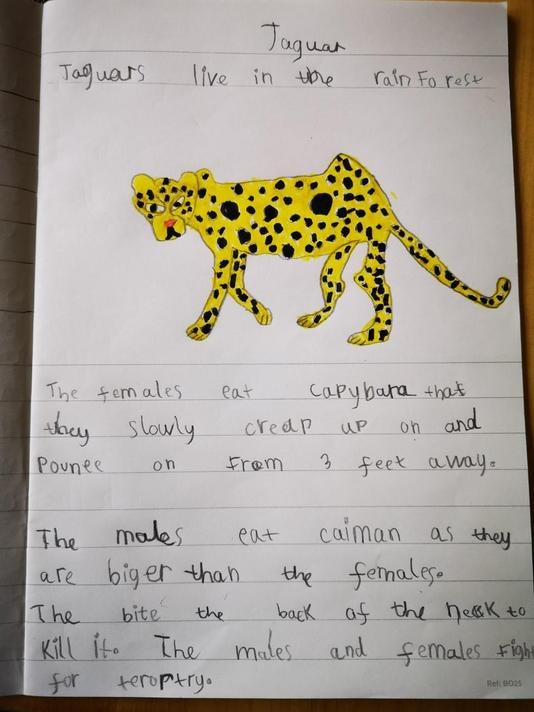 Jaguar
Jaguars live in the rainforest
The females eat capybara that
they slowly creap up on and
Pounee on from 3 feet away.
The males eat caiman as they
are biger than the females.
The bite the back of the neck to
Kill it. The males and females figh
for teroptry.
Ref: BO25